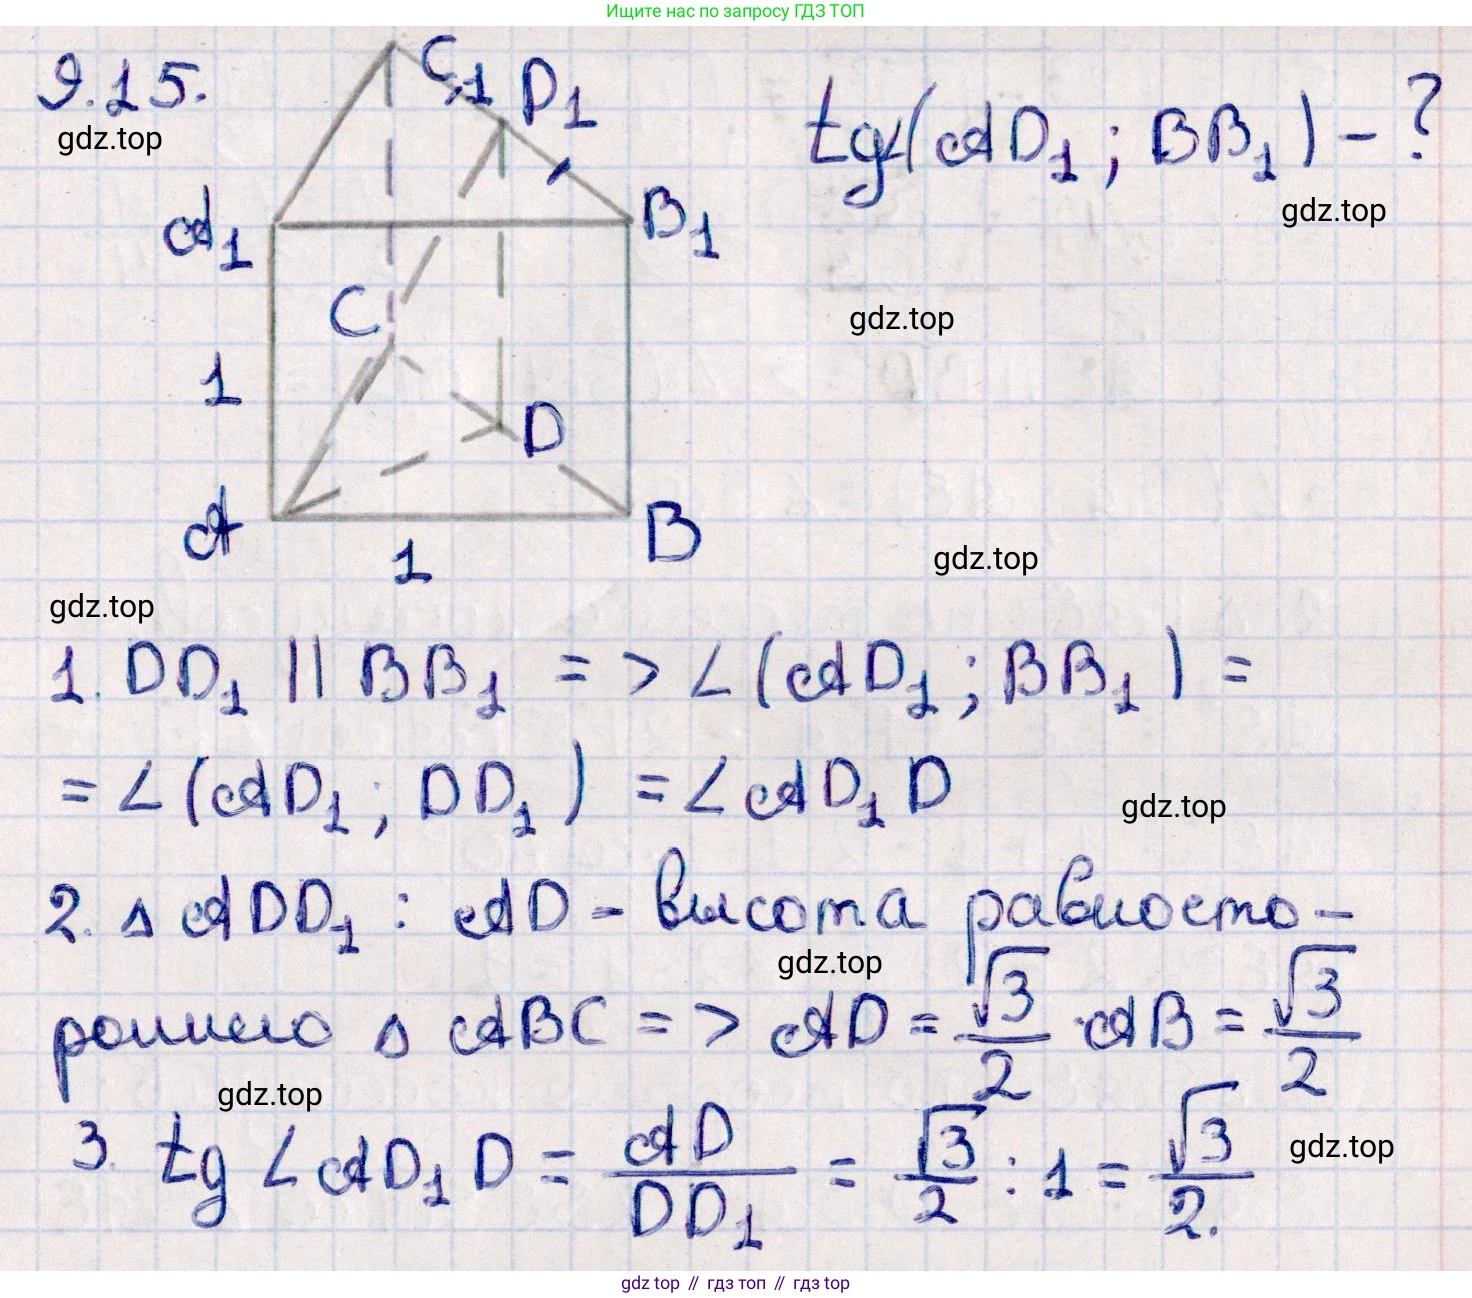 Ищите нас по запросу ГДЗ ТОП
9.15.
gdz.top
C₁
D₁
tg∠(AD₁; BB₁) - ?
gdz.top
A₁
B₁
C
gdz.top
1
D
A
B
1
gdz.top
gdz.top
1. DD₁ || BB₁ => ∠(AD₁; BB₁) =
= ∠(AD₁; DD₁) = ∠AD₁D
gdz.top
2. Δ ADD₁ : AD - высота равносто-
gdz.top
роннего Δ ABC => AD = √3/2 · AB = √3/2
gdz.top
3. tg ∠AD₁D = AD/DD₁ = √3/2 : 1 = √3/2.
gdz.top
gdz top // гдз топ // gdz top